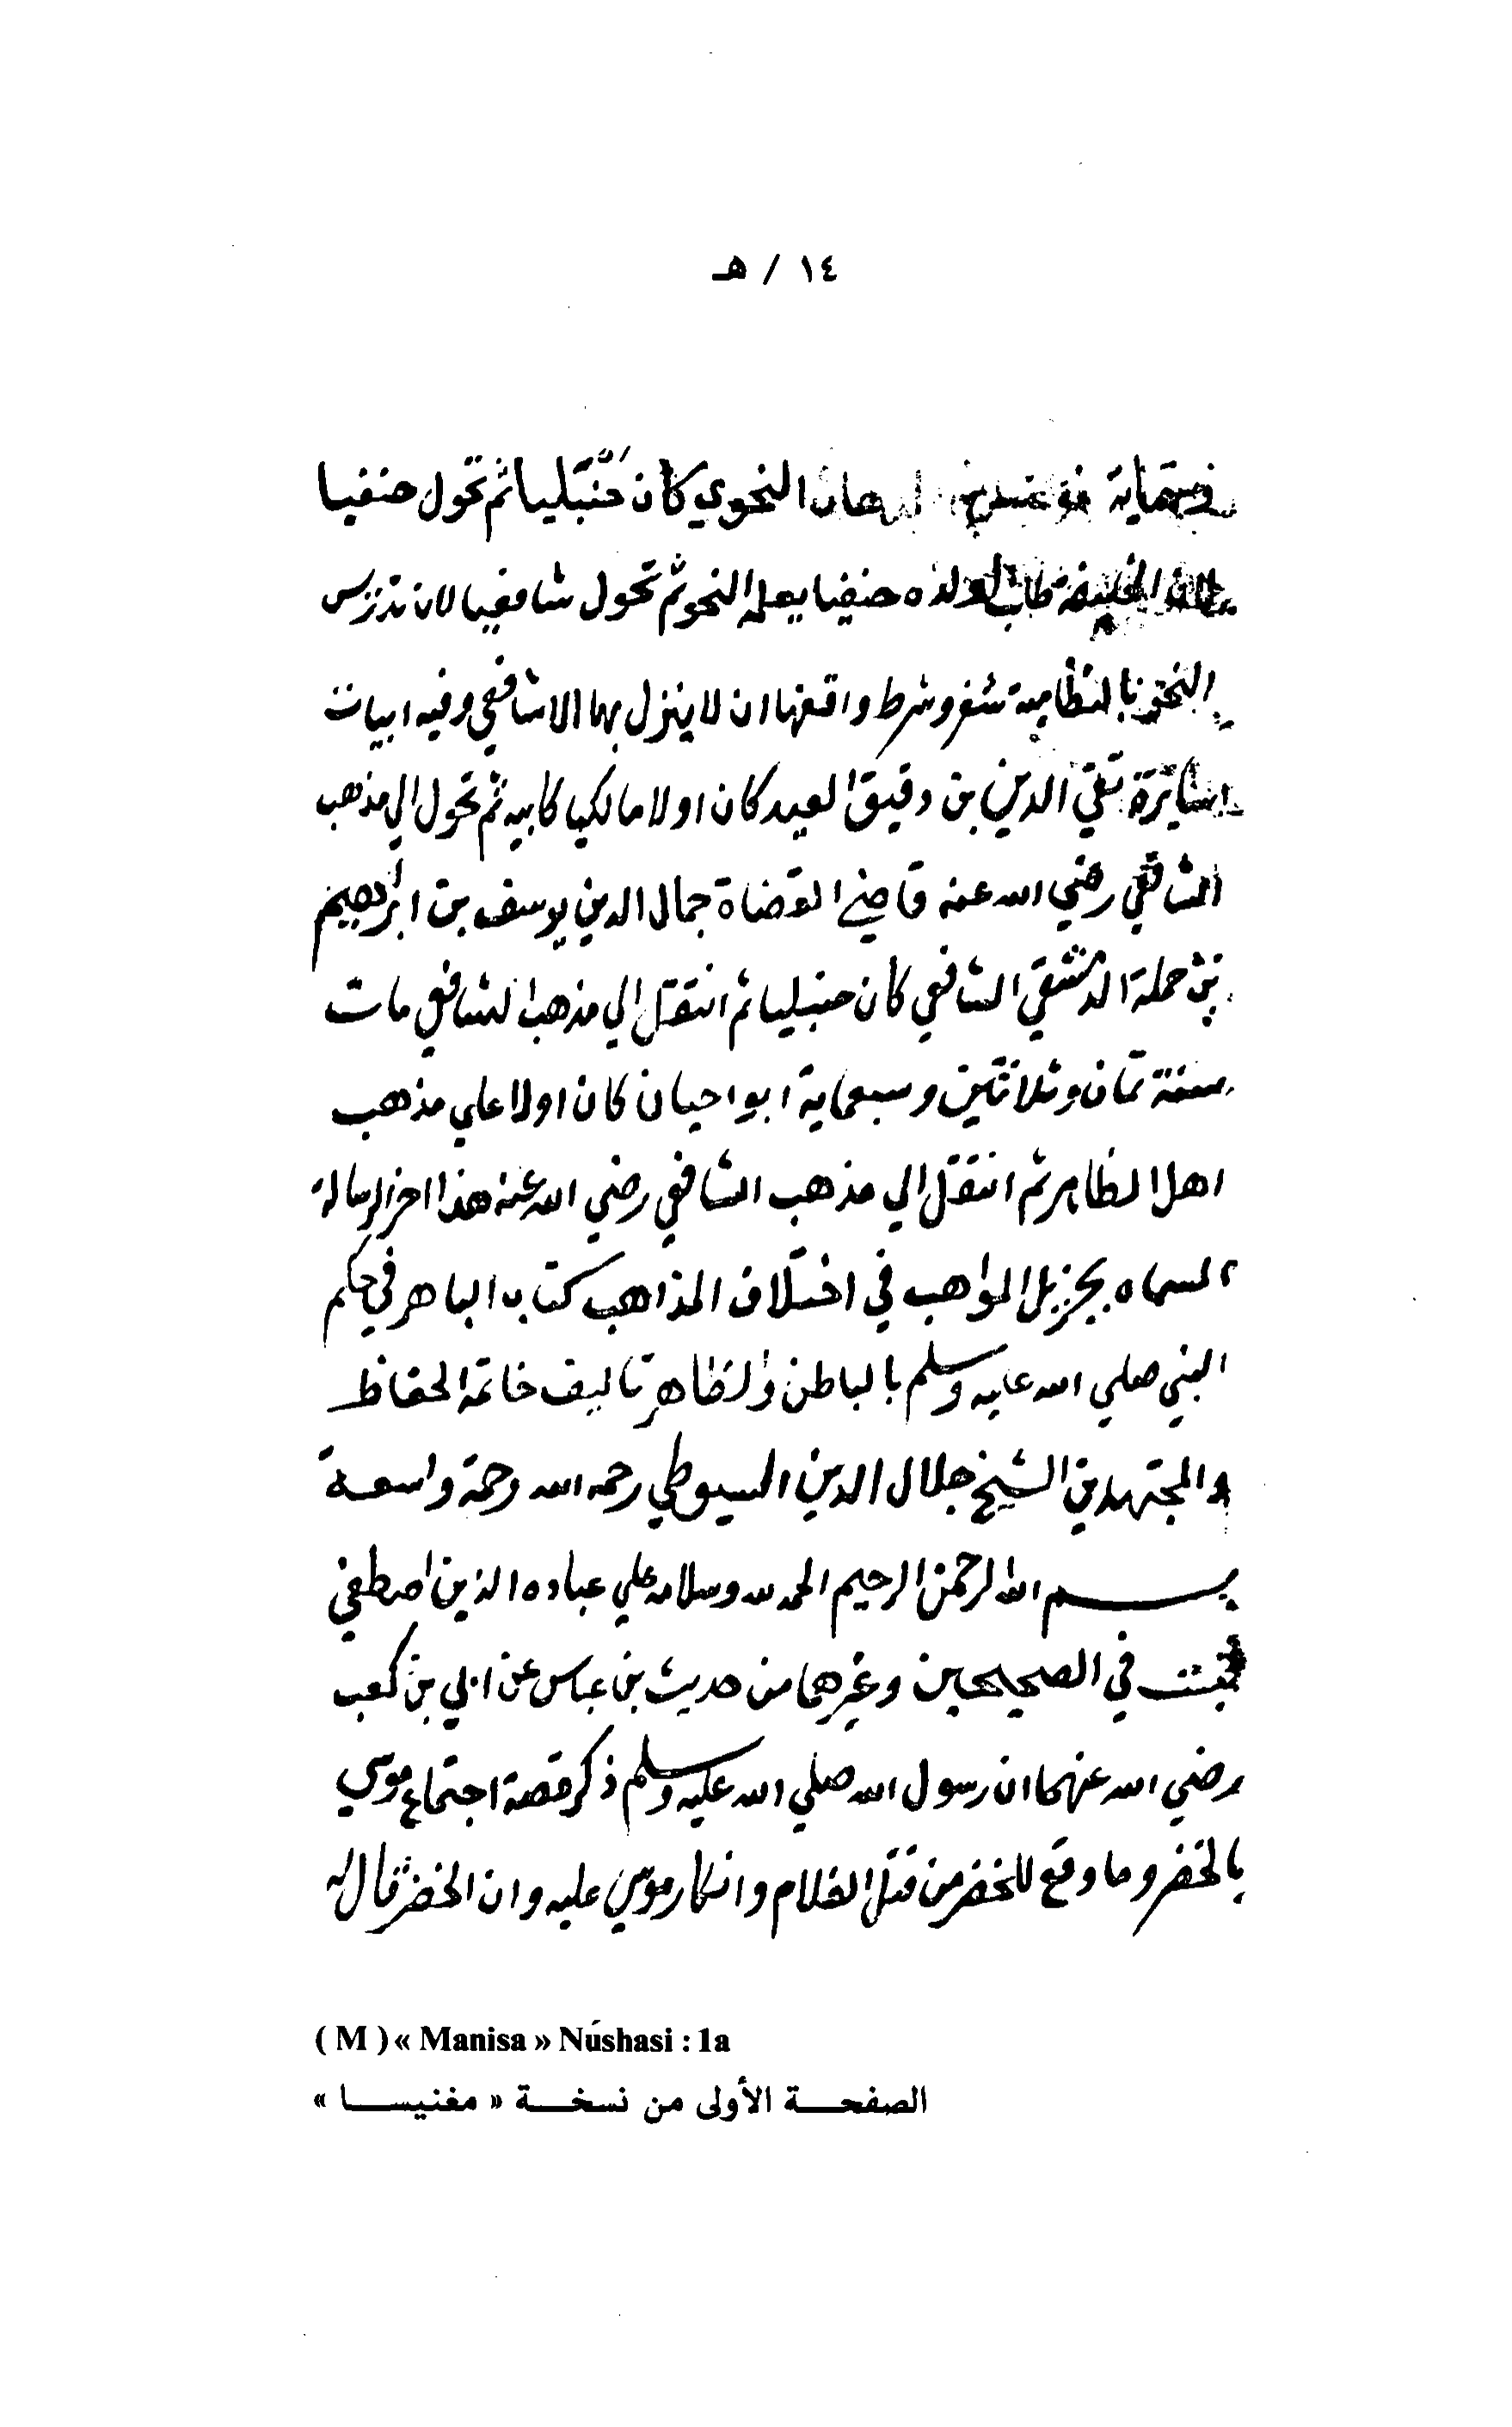 ١٤ / هـ
وستماية الدهان النحوي كان حنبليا ثم تحول حنفيا
الخليفة طلب لولده حنفيا يعلمه النحو ثم تحول شافعيا لان تدريس
النحو بالنظامية شغر وشرط واقفها ان لا ينزل بها الا شافعي وفيه ابيات
سايرة تقي الدين بن دقيق العيد كان اولا مالكيا كابيه ثم تحول الي مذهب
الشافعي رضي الله عنه قاضي القضاة جمال الدين يوسف بن ابراهيم
بن حملة الدمشقي الشافعي كان حنبليا ثم انتقل الي مذهب الشافعي مات
سنة ثمان وثلاثين وسبعماية ابو احيان كان اولا علي مذهب
اهل الظاهر ثم انتقل الي مذهب الشافعي رضي الله عنه هذا اخر الرسالة
المسماه بجزيل المواهب في اختلاف المذاهب كتاب الباهر في حكم
النبي صلي الله عليه وسلم بالباطن والظاهر تاليف خاتمة الحفاظ
والمجتهدين الشيخ جلال الدين السيوطي رحمه الله رحمة واسعة
بسم الله الرحمن الرحيم الحمد لله وسلام علي عباده الذين اصطفي
ثبت في الصحيحين وغيرهما من حديث بن عباس عن ابي بن كعب
رضي الله عنهما ان رسول الله صلي الله عليه وسلم ذكر قصة اجتماع موسي
بالخضر وما وقع للخضر من قتل الغلام وانكار موسي عليه وان الخضر قال له
( M ) « Manisa » Núshasi : 1a
الصفحة الأولى من نسخة « مغنيسا »